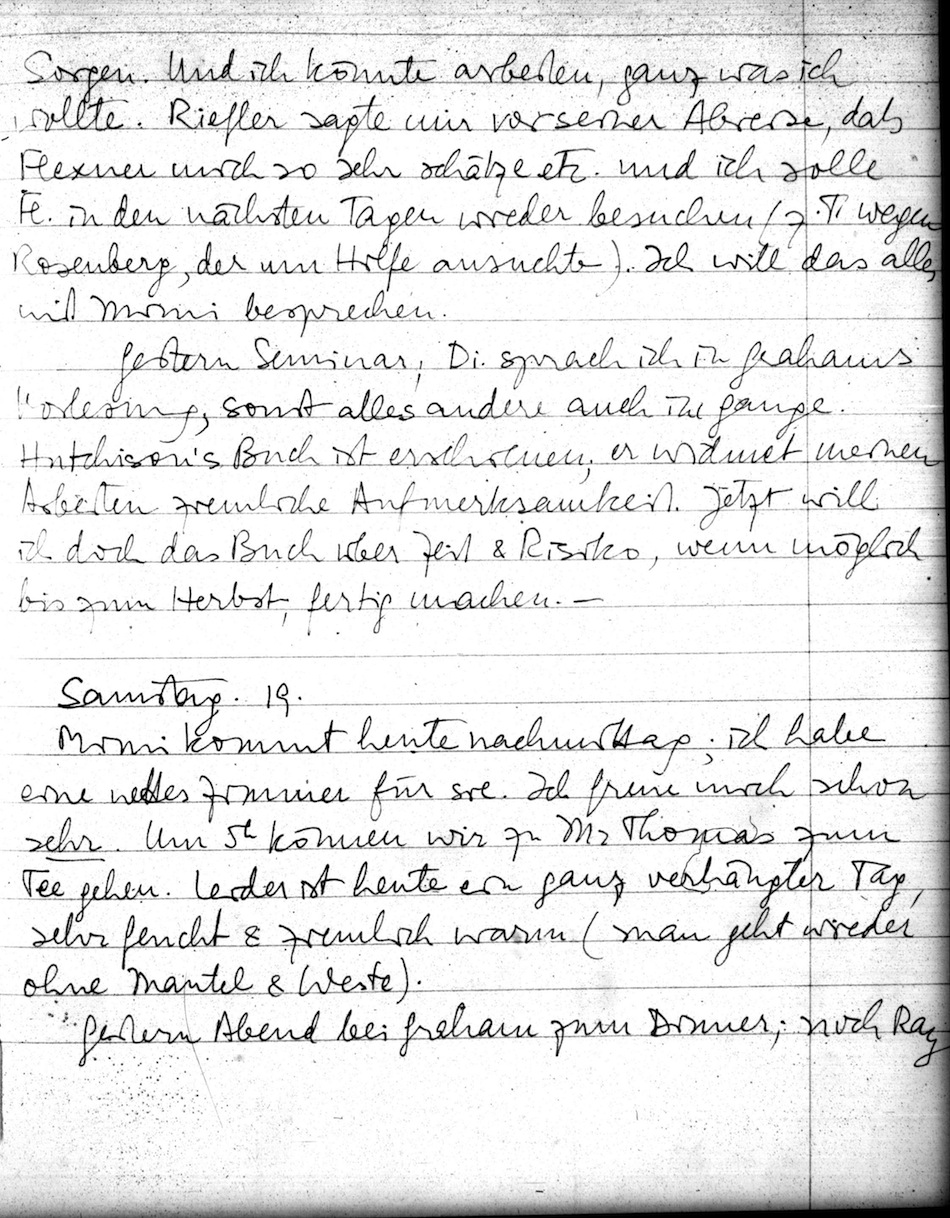 Sorgen. Und ich könnte arbeiten, ganz was ich
wollte. Riefler sagte mir vor seiner Abreise, dass
Flexner mich so sehr schätze etc. und ich solle
Fl. in den nächsten Tagen wieder besuchen (z.T. wegen
Rosenberg, der um Hilfe ansuchte). Ich will das alles
mit Mimi besprechen.
Gestern Seminar, Di. sprach ich in Grahams
Vorlesung, sonst alles andere auch im gange.
Hutchison's Buch ist erschienen, er widmet meinen
Arbeiten ziemliche Aufmerksamkeit. Jetzt will
ich doch das Buch über Zeit & Risiko, wenn möglich
bis zum Herbst, fertig machen. —
Samstag. 19.
Mimi kommt heute nachmittag; ich habe
eine nettes Zimmer für sie. Ich freue mich schon
sehr. Um 5h können wir zu Mr Thomas zum
Tee gehen. Leider ist heute ein ganz verhängter Tag,
sehr feucht & ziemlich warm (man geht wieder
ohne Mantel & Weste).
Gestern Abend bei Graham zum Dinner; noch Ray